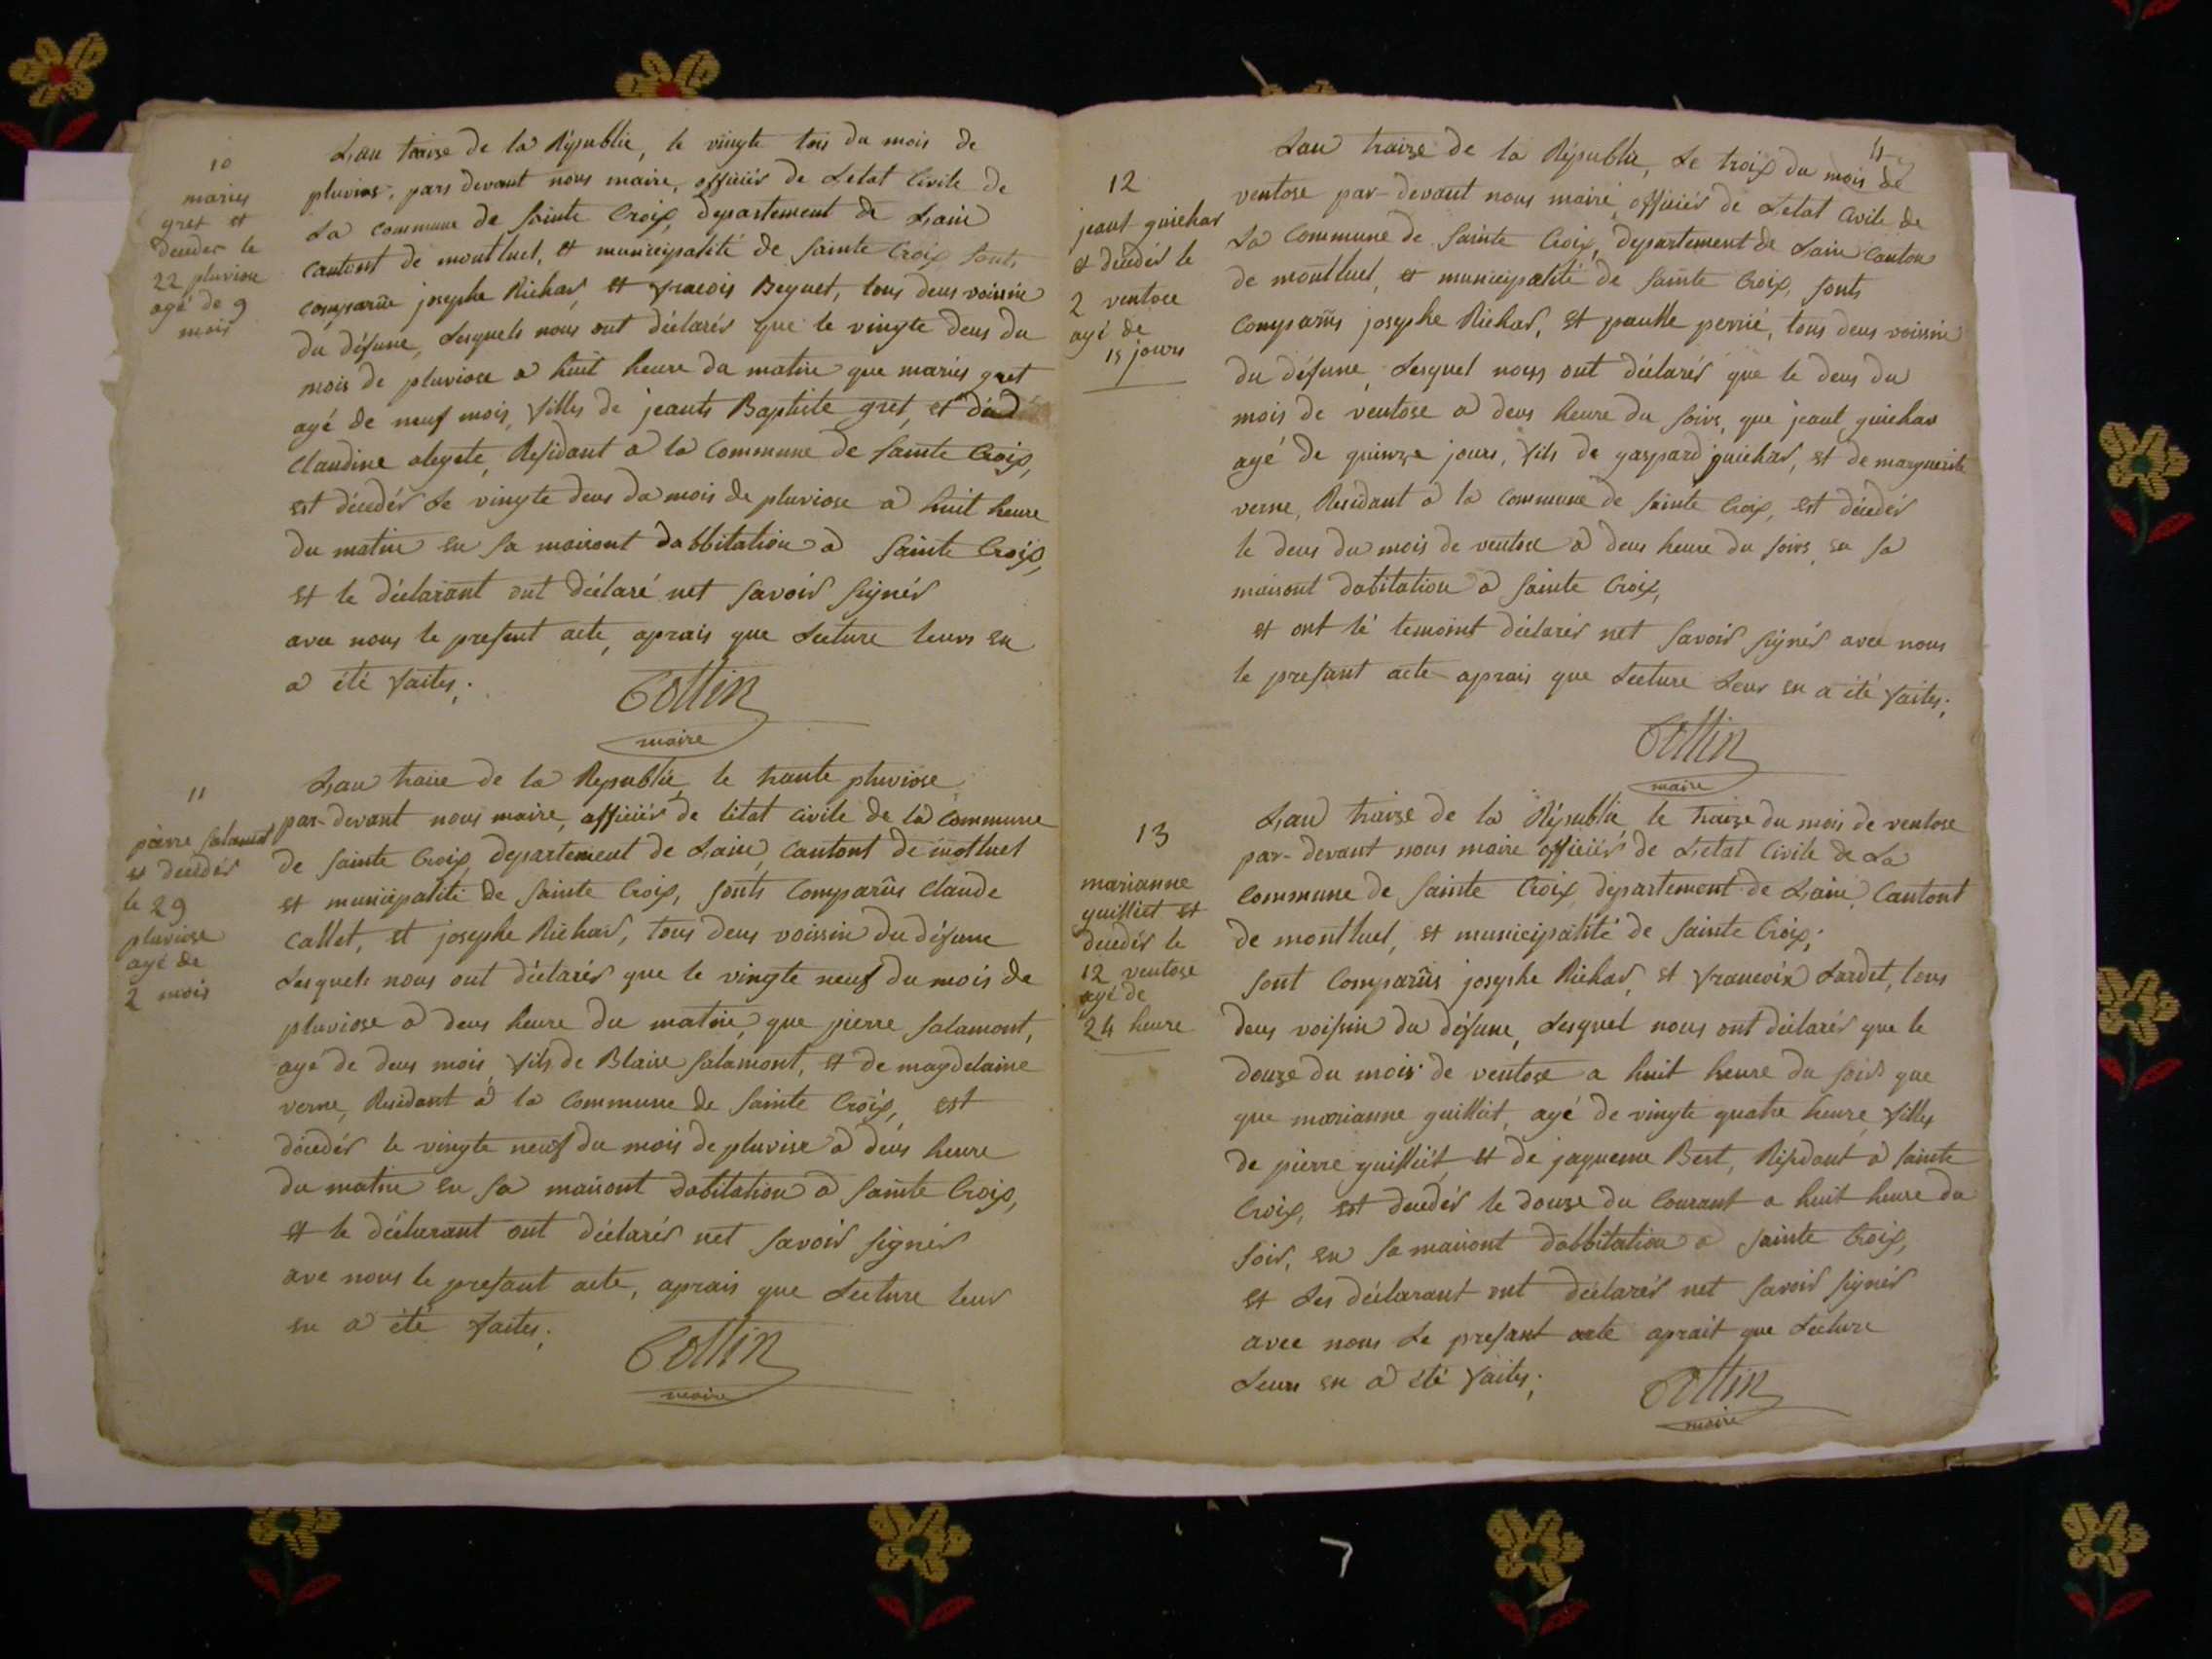 10
maries
gret et
deceder le
22 pluviose
agé de 9
mois
Lan traize de la Républic, le vingte tois du mois de
pluvios, pars devant nous maire, officiér de Letat Civile de
La commune de Sainte Croix, departement de Lain
Cantont de montluel, et municipalité de Sainte Croix sonts
comparûe josephe Richar, et fracois Beguet, tous deus voissin
du défunc, Lesquels nous ont déclarér que le vingte deus du
mois de pluviose a huit heure du matin que maries gret
agé de neuf mois, filles de jeants Baptiste gret, et de
Claudine aleyete, Residant a la Commune de Sainte Croix,
est décedér Le vingte deus du mois de pluviose a huit heure
du matin en sa maisont dabbitation a Sainte Croix,
et le déclarant ont déclaré net savoir signér
avec nous le present acte, aprais que Lecture leurs en
a été faites;
Collin
maire
11
piérre Salamont
et decedér
le 29
pluviose
agé de
2 mois
Lan traize de la Republic le trante pluviose
par-devant nous maire, officiér de létat civile de la commune
de Sainte Croix, departement de Lain, Cantont de motluel
et municipalité de Sainte Croix, sonts Comparûs Claude
Callet, et josephe Richar, tous deus voissin du défunc
Lesquels nous ont déclarér que le vingte neuf du mois de
pluviose a deus heure du matin, que pierre Salamont,
agé de deus mois, fils de Blaise Salamont, et de magdelaine
verne, Residant a la Commune de Sainte Croix, est
décedér le vingte neuf du mois de pluvise a deus heure
du matin en sa maisont dabitation a Sainte Croix,
et le déclarant ont déclarér net savoir signér
ave nous le presant acte, aprais que Lecture leur
en a été faites;
Collin
maire
12
jeant guichar
et décedér le
2 ventose
agé de
15 jours
11
Lan traize de la Républic, Le troix du mois de
ventose par-devant nous maire, officiér de Letat Civile de
La Commune de Sainte Croix, departement de Lain Canton
de montluel, et municipalité de Sainte Croix, sonts
Comparûs josephe Richar, et paulle perrié, tous deus voissin
du défunc, Lesquel nous ont déclarér que le deus du
mois de ventose a deus heure du soirs, que jeant guichar
agé de quinze jours, fils de gaspard guichar, et de marguerite
verne, Residant a la Commune de Sainte Croix, est décedér
le deus du mois de ventose a deus heure du soirs, en sa
maisont dabitation a Sainte Croix,
et ont lé temoint déclarér net savoir signér avec nous
le presant acte aprais que Lecture Leur en a été faites;
Collin
maire
13
marianne
guilliet et
decedér le
12 ventose
agé de
24 heure
Lan traize de la Républic le traize du mois de ventose
par-devant nous maire officiér de Letat Civile de La
Commune de Sainte Croix departement de Lain, Cantont
de montluel, et municipalité de Sainte Croix;
sont Comparûs josephe Richar, et francoix Lardet, tous
deus voisin du défunc, Lesquel nous ont déclarér que le
douze du mois de ventose a huit heure du soir que
que marianne guilliet, agé de vingte quatre heure, filles
de pierre guilliét et de jaqueme Bert, Résidant a Sainte
Croix, est decedér le douze du Courant a huit heure du
soir, en sa maisont dabbitation a Sainte Croix,
et Les déclarant ont déclarér net savoir signér
avec nous Le presant acte aprait que Lecture
Leurs en a été faites;
Collin
maire